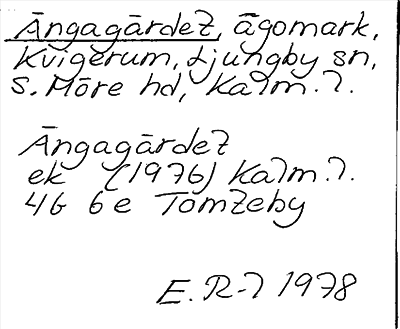 Ängagärdet, ägomark,
Kvigerum, Ljungby sn,
S. Möre hd, Kalm. l.
Ängagärdet
ek (1976) Kalm. l.
4G 6e Tomteby
E. R-l 1978